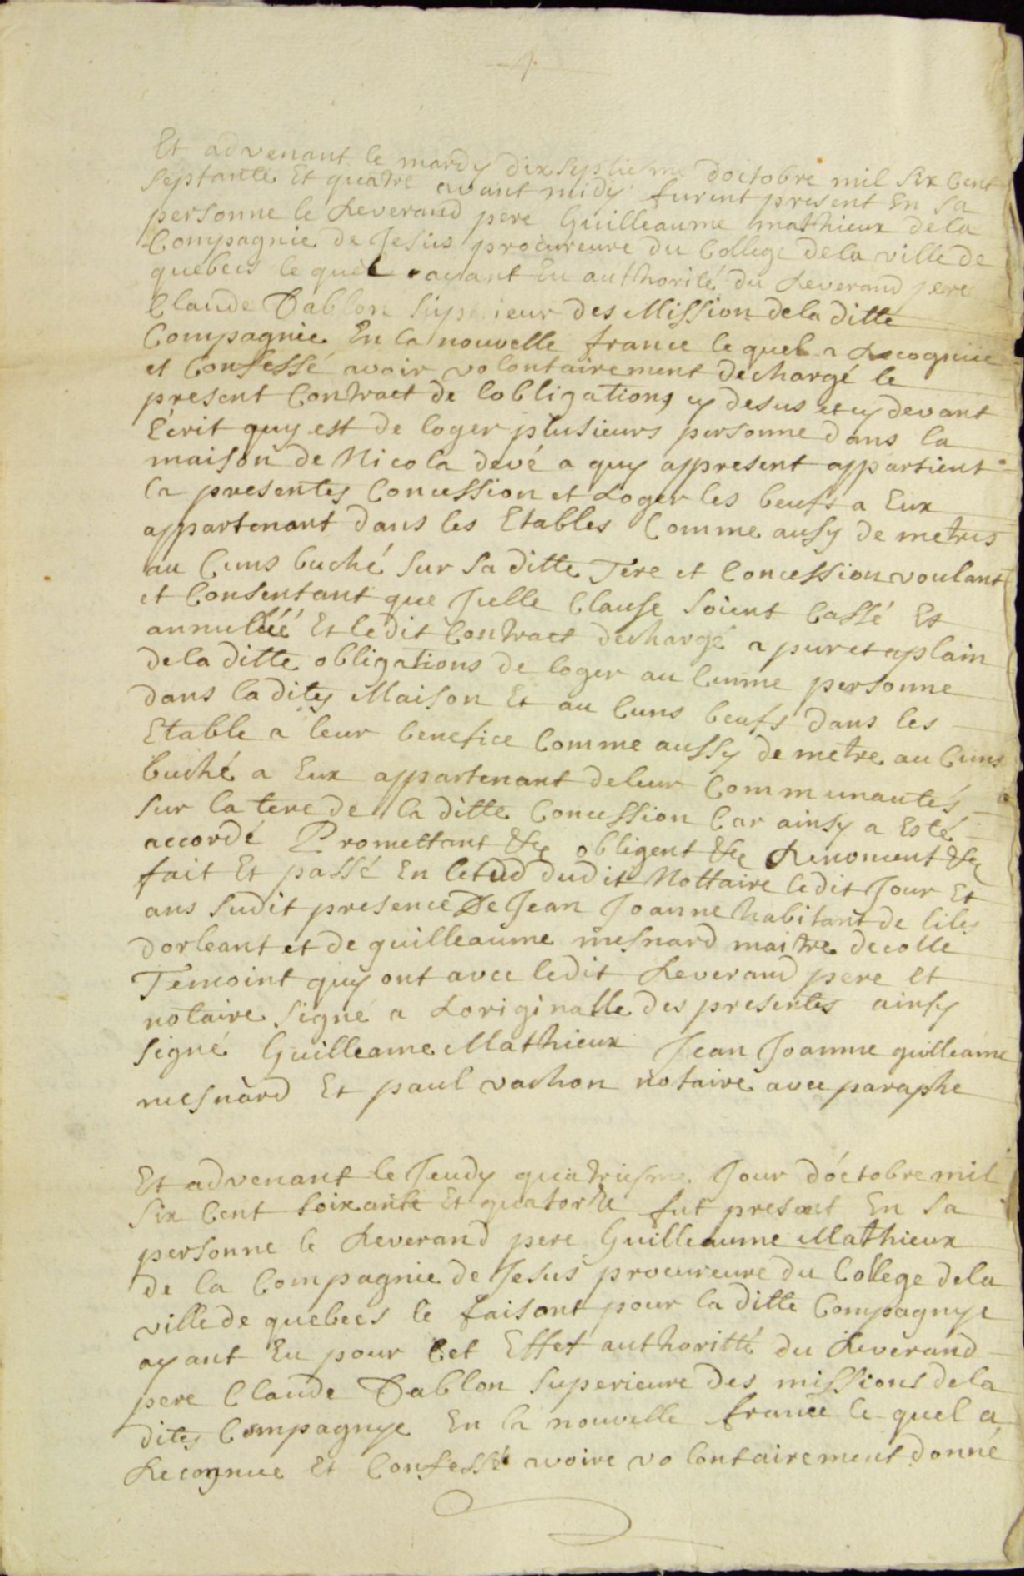 Et advenant le mardy dix septiesme doictobre mil six Cent
septante Et quatre avant midy furent present En sa
personne le Reverand pere Guilleaume mathieux dela
Compagnie de Jesus procureure du College dela ville de
quebecs le quel ayant Eu authorité du Reverand pere
Claude Dablon Superieur des Mission dela ditte
Compagnie En la nouvelle france le quel a Recognüe
et Confessé avoir volontairement dechargé le
present Contract de lobligations cy desus et cy devant
Ecrit quy est de loger plusieurs personne dans la
maison de Nicola devé a quy appresent appartient
la presentes Concession et Loger les beufs a Eux
appartenant dans les Etables Comme ausy de metres
au Cuns buché sur sa ditte Tere et Concession voulant
et Consentant que Jcelle Clause soient Cassé Et
annullé Et ledit Contract dechargé a pur et aplain
dela ditte obligations de loger au Cunne personne
dans ladites Maison Et au Cuns beufs dans les
Etable a leur benefice Comme aussy de metre au Cuns
buché a Eux appartenant deleur Communautés
sur la tere de la ditte Concession Car ainsy a Esté
accordé Promettant &c obligent &c Renoncent &c
fait Et passé En letud dudit Nottaire ledit Jour Et
ans sudit presence De Jean Joanne habitant de liles
dorleant et de guilleaume mesnard maitre decolle
Temoint quy ont avec ledit Reverand pere et
notaire signé a Loriginalle des presentes ainsy
signé Guilleame Mathieux Jean Joanne guilleame
mesnard Et paul vachon notaire avec paraphe
Et advenant le Jeudy quatriesme Jour doctobre mil
six Cent soixante Et quatorze fut present En sa
personne le Reverand pere Guilleaume Mathieux
de la Compagnie de Jesus procureure du College dela
ville de quebecs le faisant pour la ditte Compagnye
ayant Eu pour Cet Effet authoritté du Reverand
pere Claude Dablon superieure des missions dela
dites Compagnye En la nouvelle france le quel a
Recognue Et Confessé avoire volontairement donné